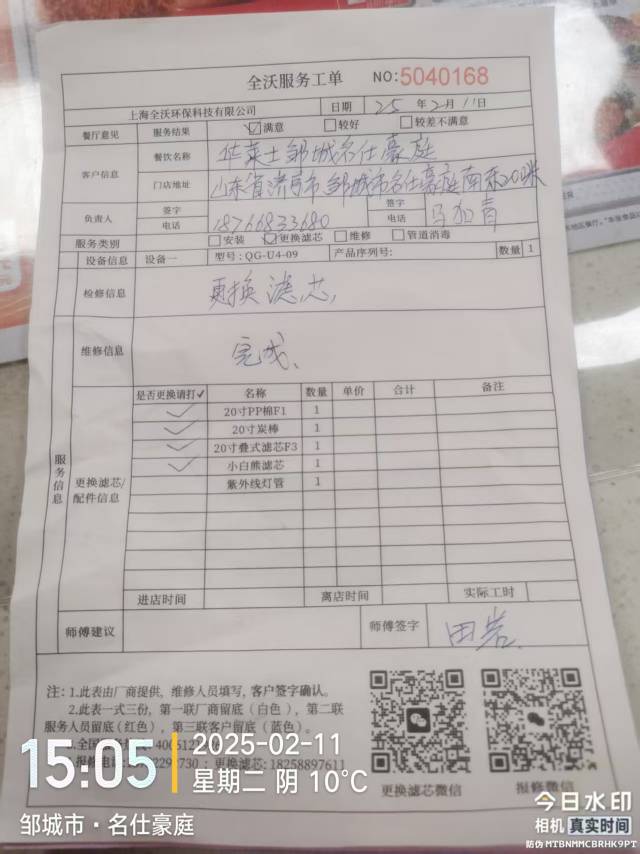 全沃服务工单 NO:5040168
上海全沃环保科技有限公司 日期 25年2月11日
餐厅意见 服务结果 ☑满意 □较好 □较差不满意
客户信息 餐饮名称 华莱士邹城名仕豪庭
门店地址 山东省济宁市邹城市名仕豪庭南东200米
负责人 签字 签字
电话 18766833680 电话
服务类别 □安装 ☑更换滤芯 □维修 □管道消毒
设备信息 设备一 型号:QG-U4-09 产品序列号: 数量 1
检修信息 更换滤芯,
维修信息 完成、
服务信息
更换滤芯/配件信息
是否更换请打✓ 名称 数量 单价 合计 备注
✓ 20寸PP棉F1 1
✓ 20寸炭棒 1
✓ 20寸叠式滤芯F3 1
✓ 小白熊滤芯 1
紫外线灯管 1
进店时间 离店时间 实际工时
师傅建议 师傅签字 田岩
注:1.此表由厂商提供,维修人员填写,客户签字确认。
2.此表一式三份,第一联厂商留底(白色),第二联
服务人员留底(红色),第三联客户留底(蓝色)。
更换滤芯:18258897611
更换滤芯微信 报修微信
15:05 2025-02-11
星期二 阴 10℃
邹城市·名仕豪庭
今日水印
相机 真实时间
防伪 MTBNMMCBRHK9PT